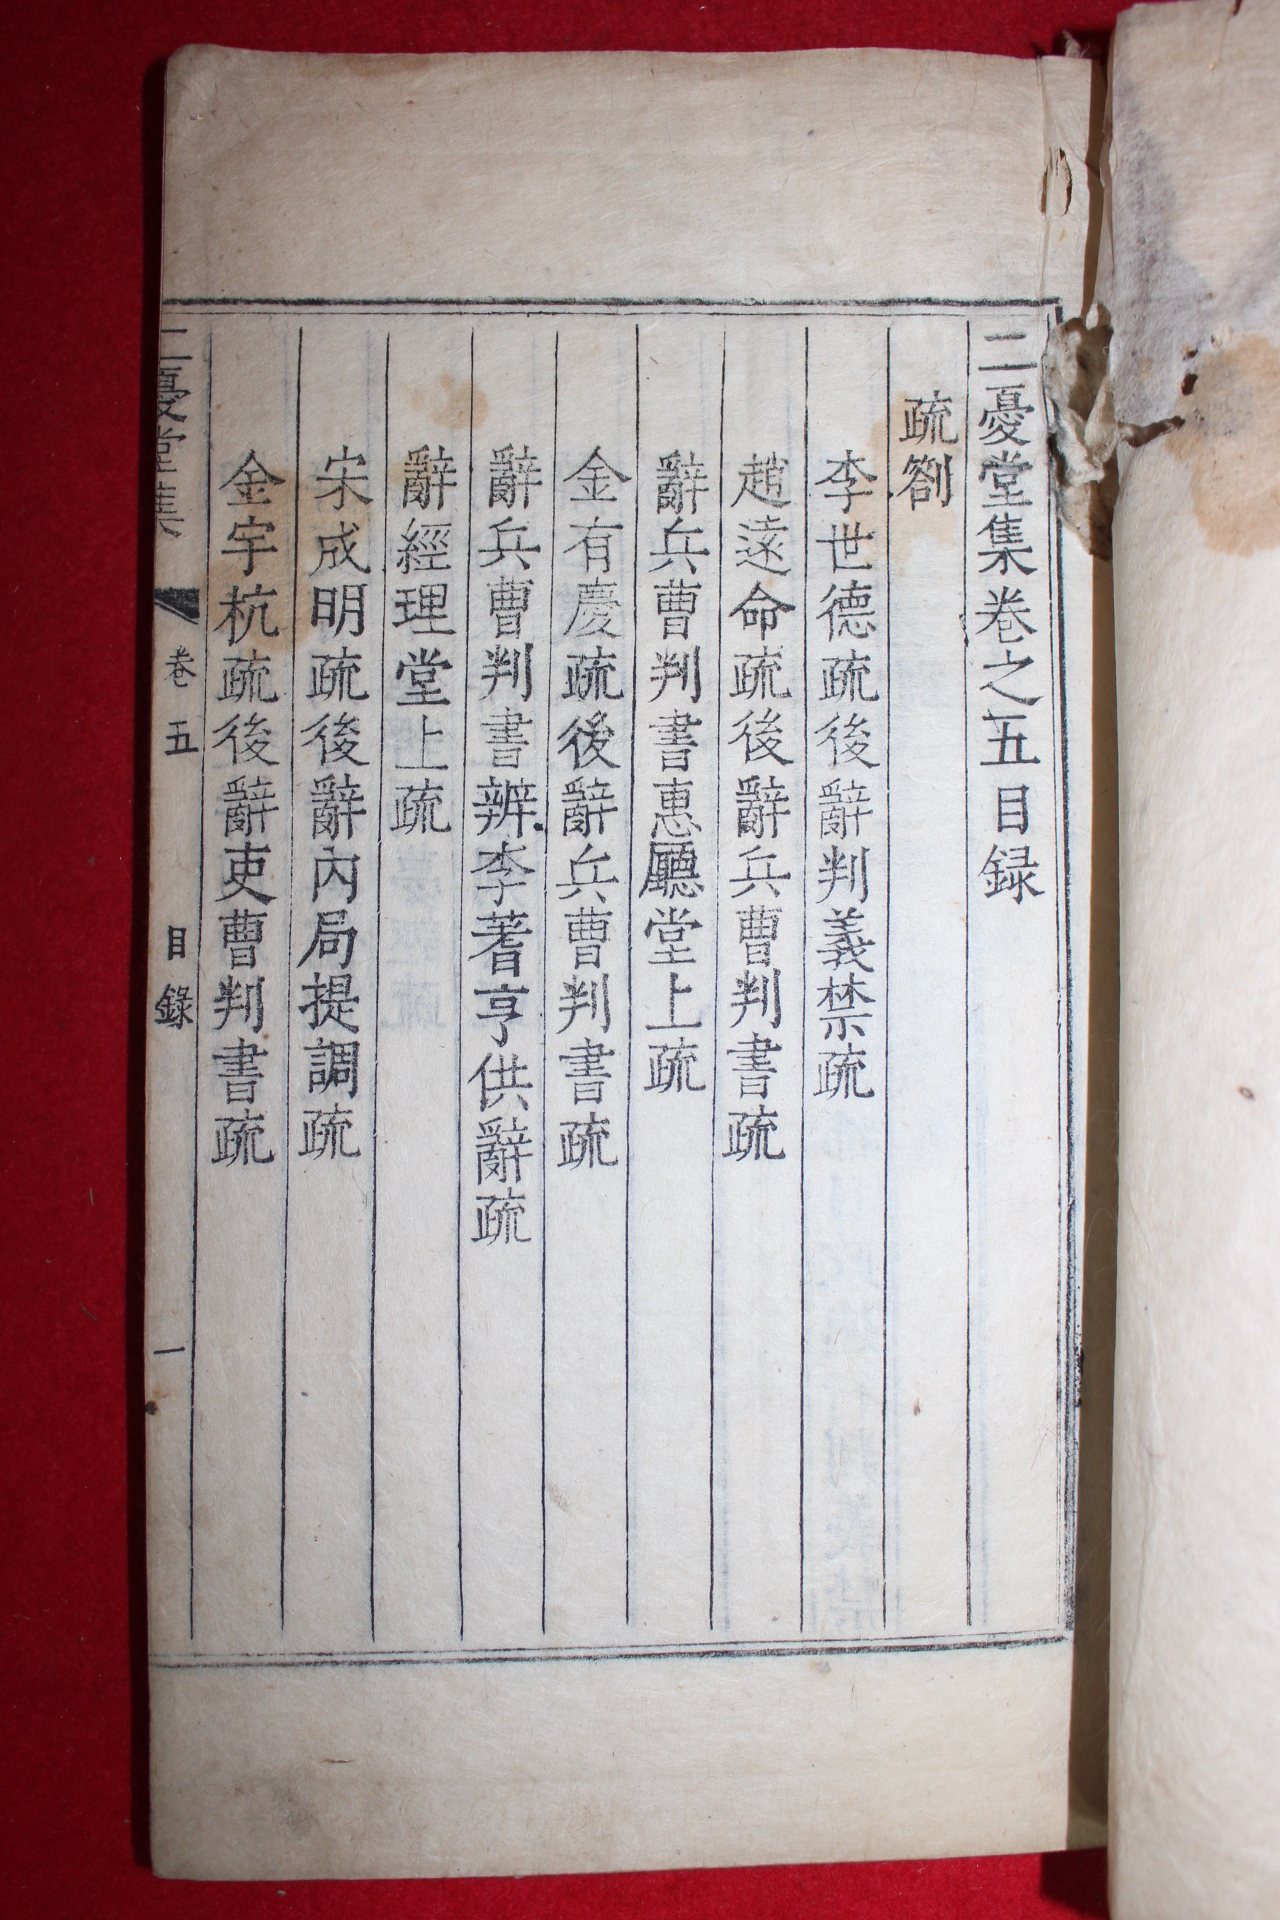 二憂堂集卷之五目録
疏劄
李世德疏後辭判義禁疏
趙遠命疏後辭兵曹判書疏
辭兵曹判書惠廳堂上疏
金有慶疏後辭兵曹判書疏
辭兵曹判書辨李蓍亨供辭疏
辭經理堂上疏
宋成明疏後辭內局提調疏
金宇杭疏後辭吏曹判書疏
二憂堂集 卷五 目錄 一